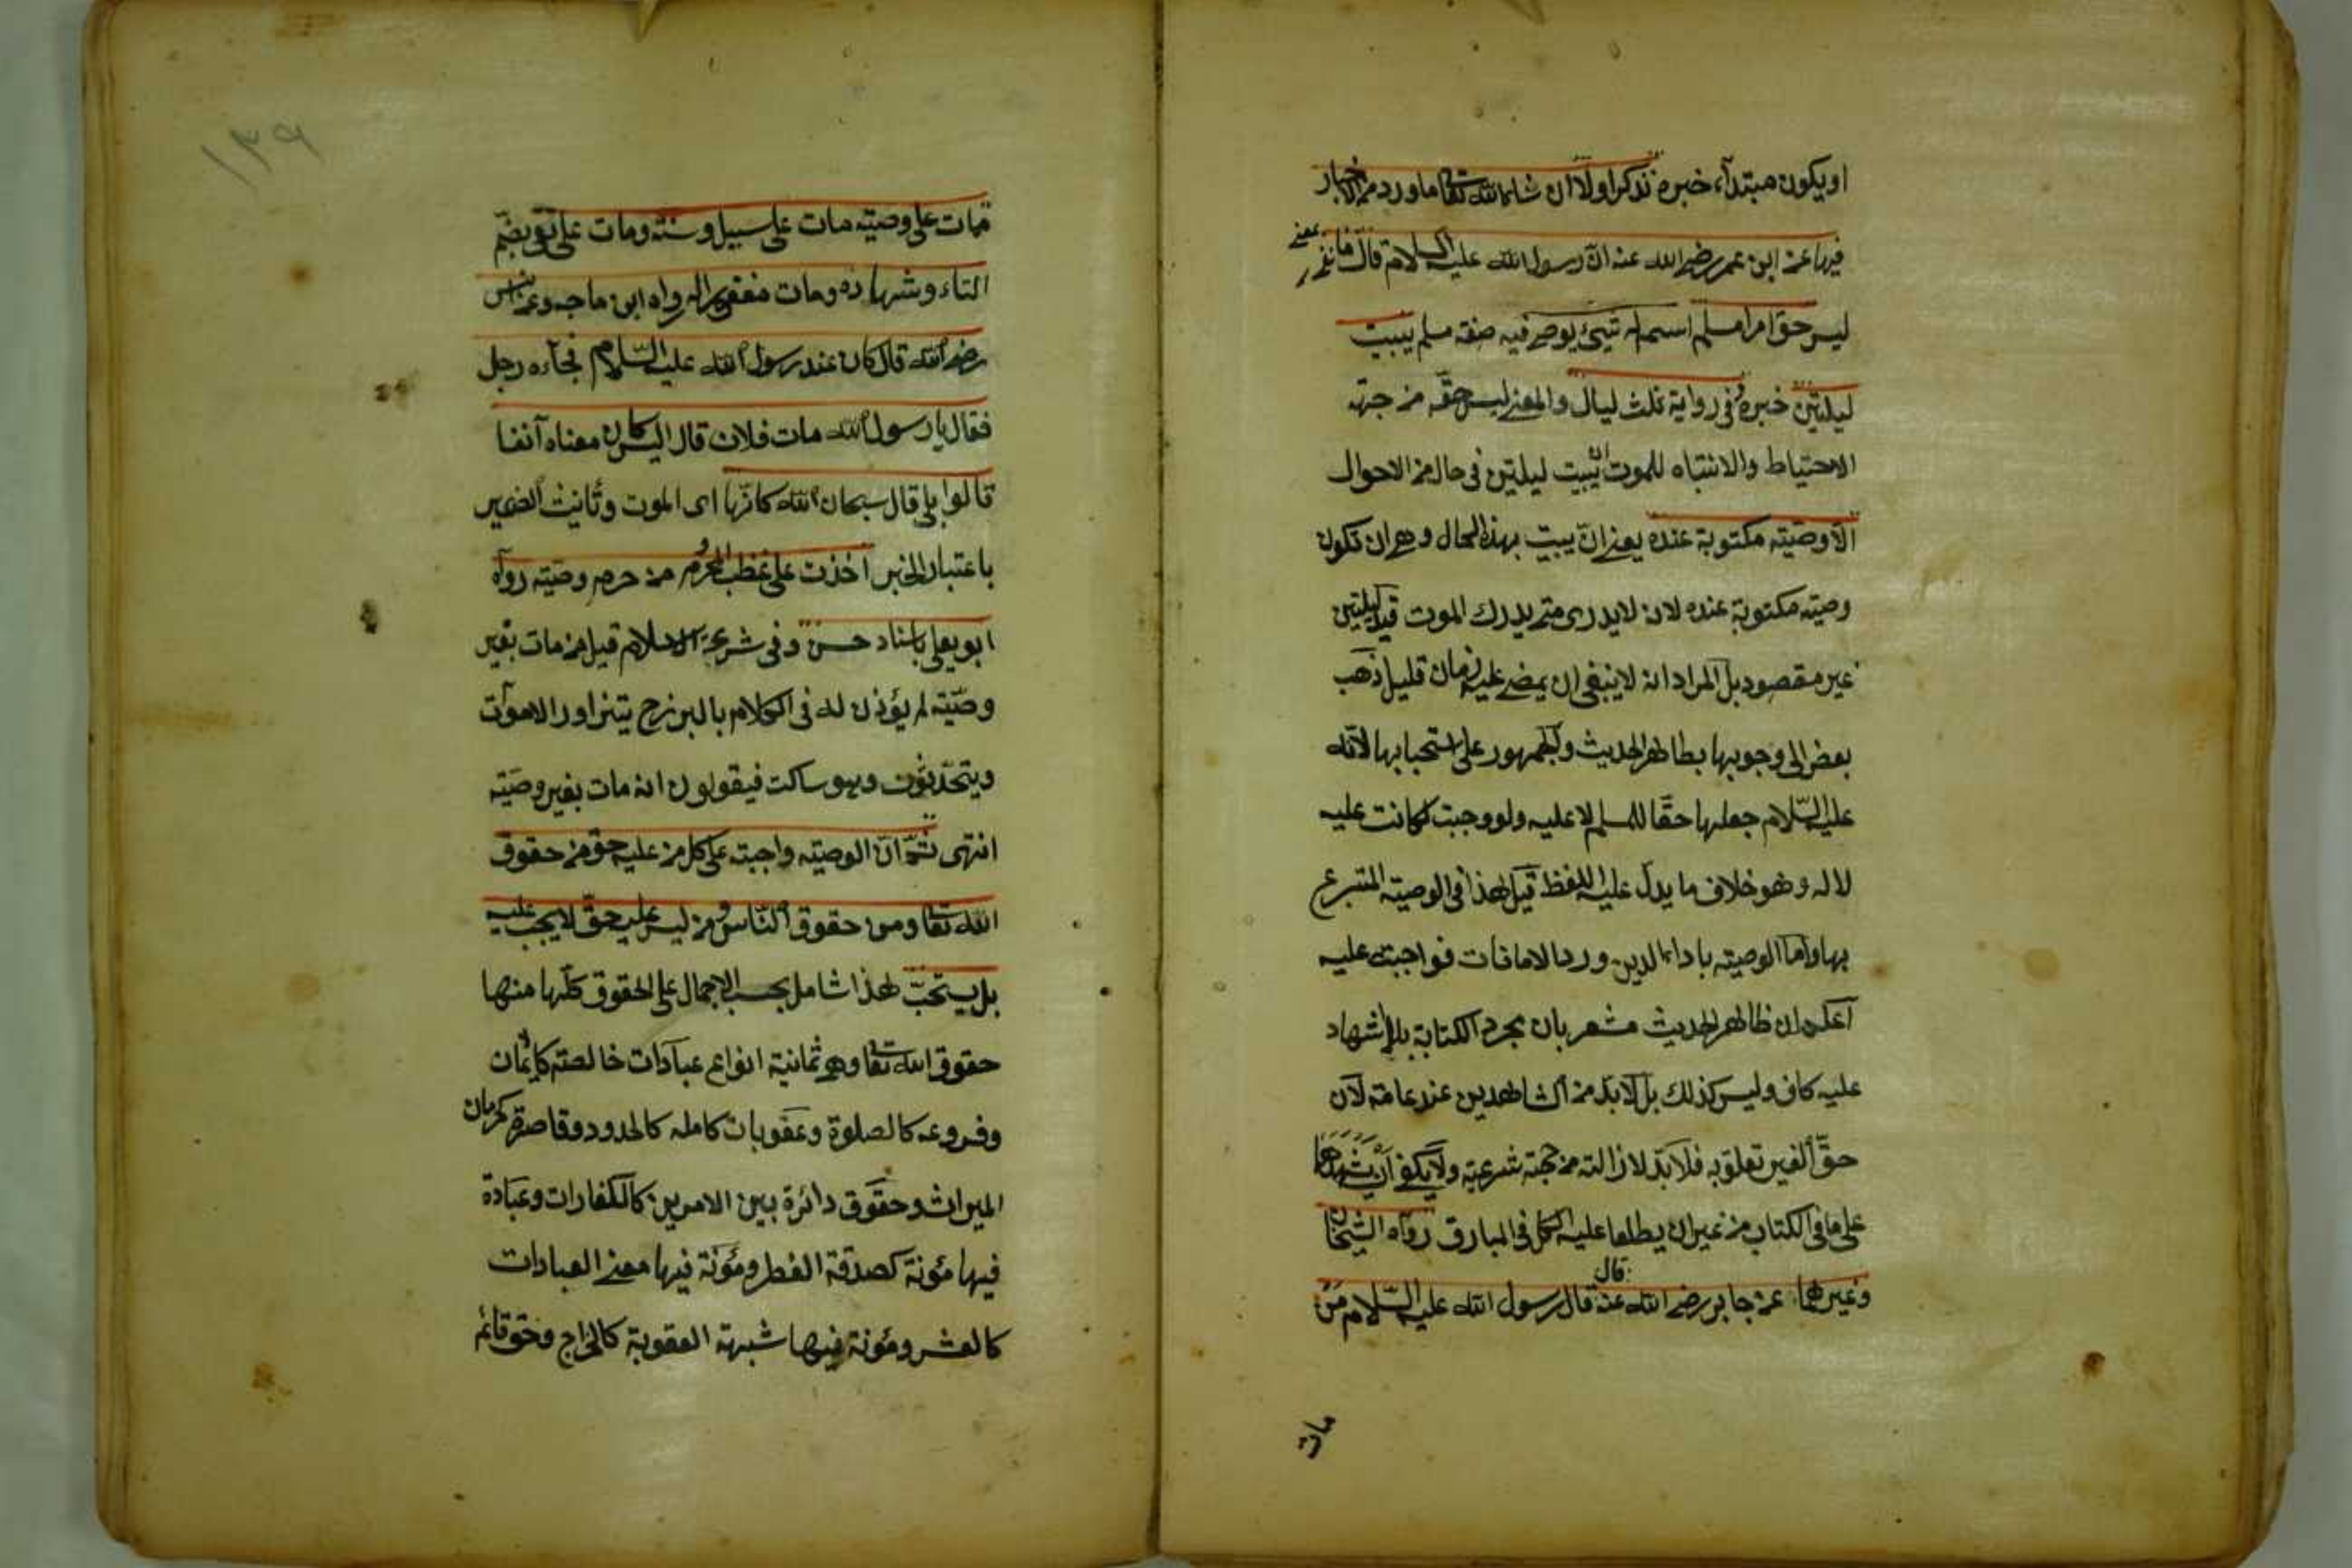 او يكون مبتدأ، خبره نذكر اولا ان شاء الله تعالى ما ورد من الاخبار
فيها عن ابن عمر رضى الله عنه انّ رسول الله عليه السلام قال ما نفى بمعنى
ليس حق امرأ مسلم اسم ما له شئ يوصى فيه صفة مسلم يبيت
ليلتين خبره وفى رواية ثلث ليال والمعنى ليس حقّه من جهة
الاحتياط والانتباه للموت ان يبيت ليلتين فى حال من الاحوال
الّا وصيّته مكتوبة عنده يعنى انّ يبيت بهذه الحال وهى ان تكون
وصيته مكتوبة عنده لان لا يدرى متى يدرك الموت قيد ليلتين
غير مقصود بل المراد انه لا ينبغى ان يمضى عليه زمان قليل ذهب
بعض الى وجوبها بظاهر الحديث والجمهور على استحبابها لانّه
عليه السّلام جعلها حقّا للمسلم لا عليه ولو وجبت لكانت عليه
لا له وهو خلاف ما يدلّ عليه اللفظ قيل هذا فى الوصية المتبرع
بها وامّا الوصية باداء الدين وردالامانات فواجبة عليه
اعلم ان ظاهر الحديث مشعر بان مجرد الكتابة بلا اشهاد
عليه كاف وليس كذلك بل لابدّ من الشاهدين عند عامة لانّ
حقّ الغير تعلق به فلابدّ لازالته من حجّة شرعيّة ولا يكفى ان يشهدهما
على ما فى الكتاب من غير ان يطلعا عليه الكل فى المبارق رواه الشيخان
وغيرهما عن جابر رضى الله عنه قال قال رسول الله عليه السّلام من
مات
١٣٩
مات على وصيّة مات على سبيل وسنّة ومات على تقى بضمّ
التاء وشهادة ومات مغفورا له رواه ابن ماجه وعن انس
رضى الله قال كان عند رسول الله عليه السّلام فجاءه رجل
فقال يا رسول الله مات فلان قال اليس كان معناه آنفا
قالوا بلى قال سبحان الله كانّها اى الموت وتانيث الضمير
باعتبار الخبر اخذت على غضب المحروم من حرم وصيّته رواه
ابو يعلى باسناد حسن وفى شرعة الاسلام قيل من مات بغير
وصيّة لم يؤذن له فى الكلام بالبرزخ يتزاور الاموات
ويتحدّثون وهو ساكت فيقولون انه مات بغير وصيّة
انتهى ثمّ انّ الوصيّة واجبة على كل من عليه حقّ من حقوق
الله تعالى ومن حقوق النّاس ومن ليس عليه حقّ لا يجب عليه
بل يستحبّ هذا شامل بحسب الاجمال على الحقوق كلّها منها
حقوق الله تعالى وهى ثمانية انواع عبادات خالصة كايمان
وفروعه كالصلوة وعقوبات كاملة كالحدود وقاصرة كحرمان
الميراث وحقوق دائرة بين الامرين كالكفارات وعبادة
فيها مؤنة كصدقة الفطر ومؤنة فيها معنى العبادات
كالعشر ومؤنة فيها شبهة العقوبة كالخراج وحق قائم